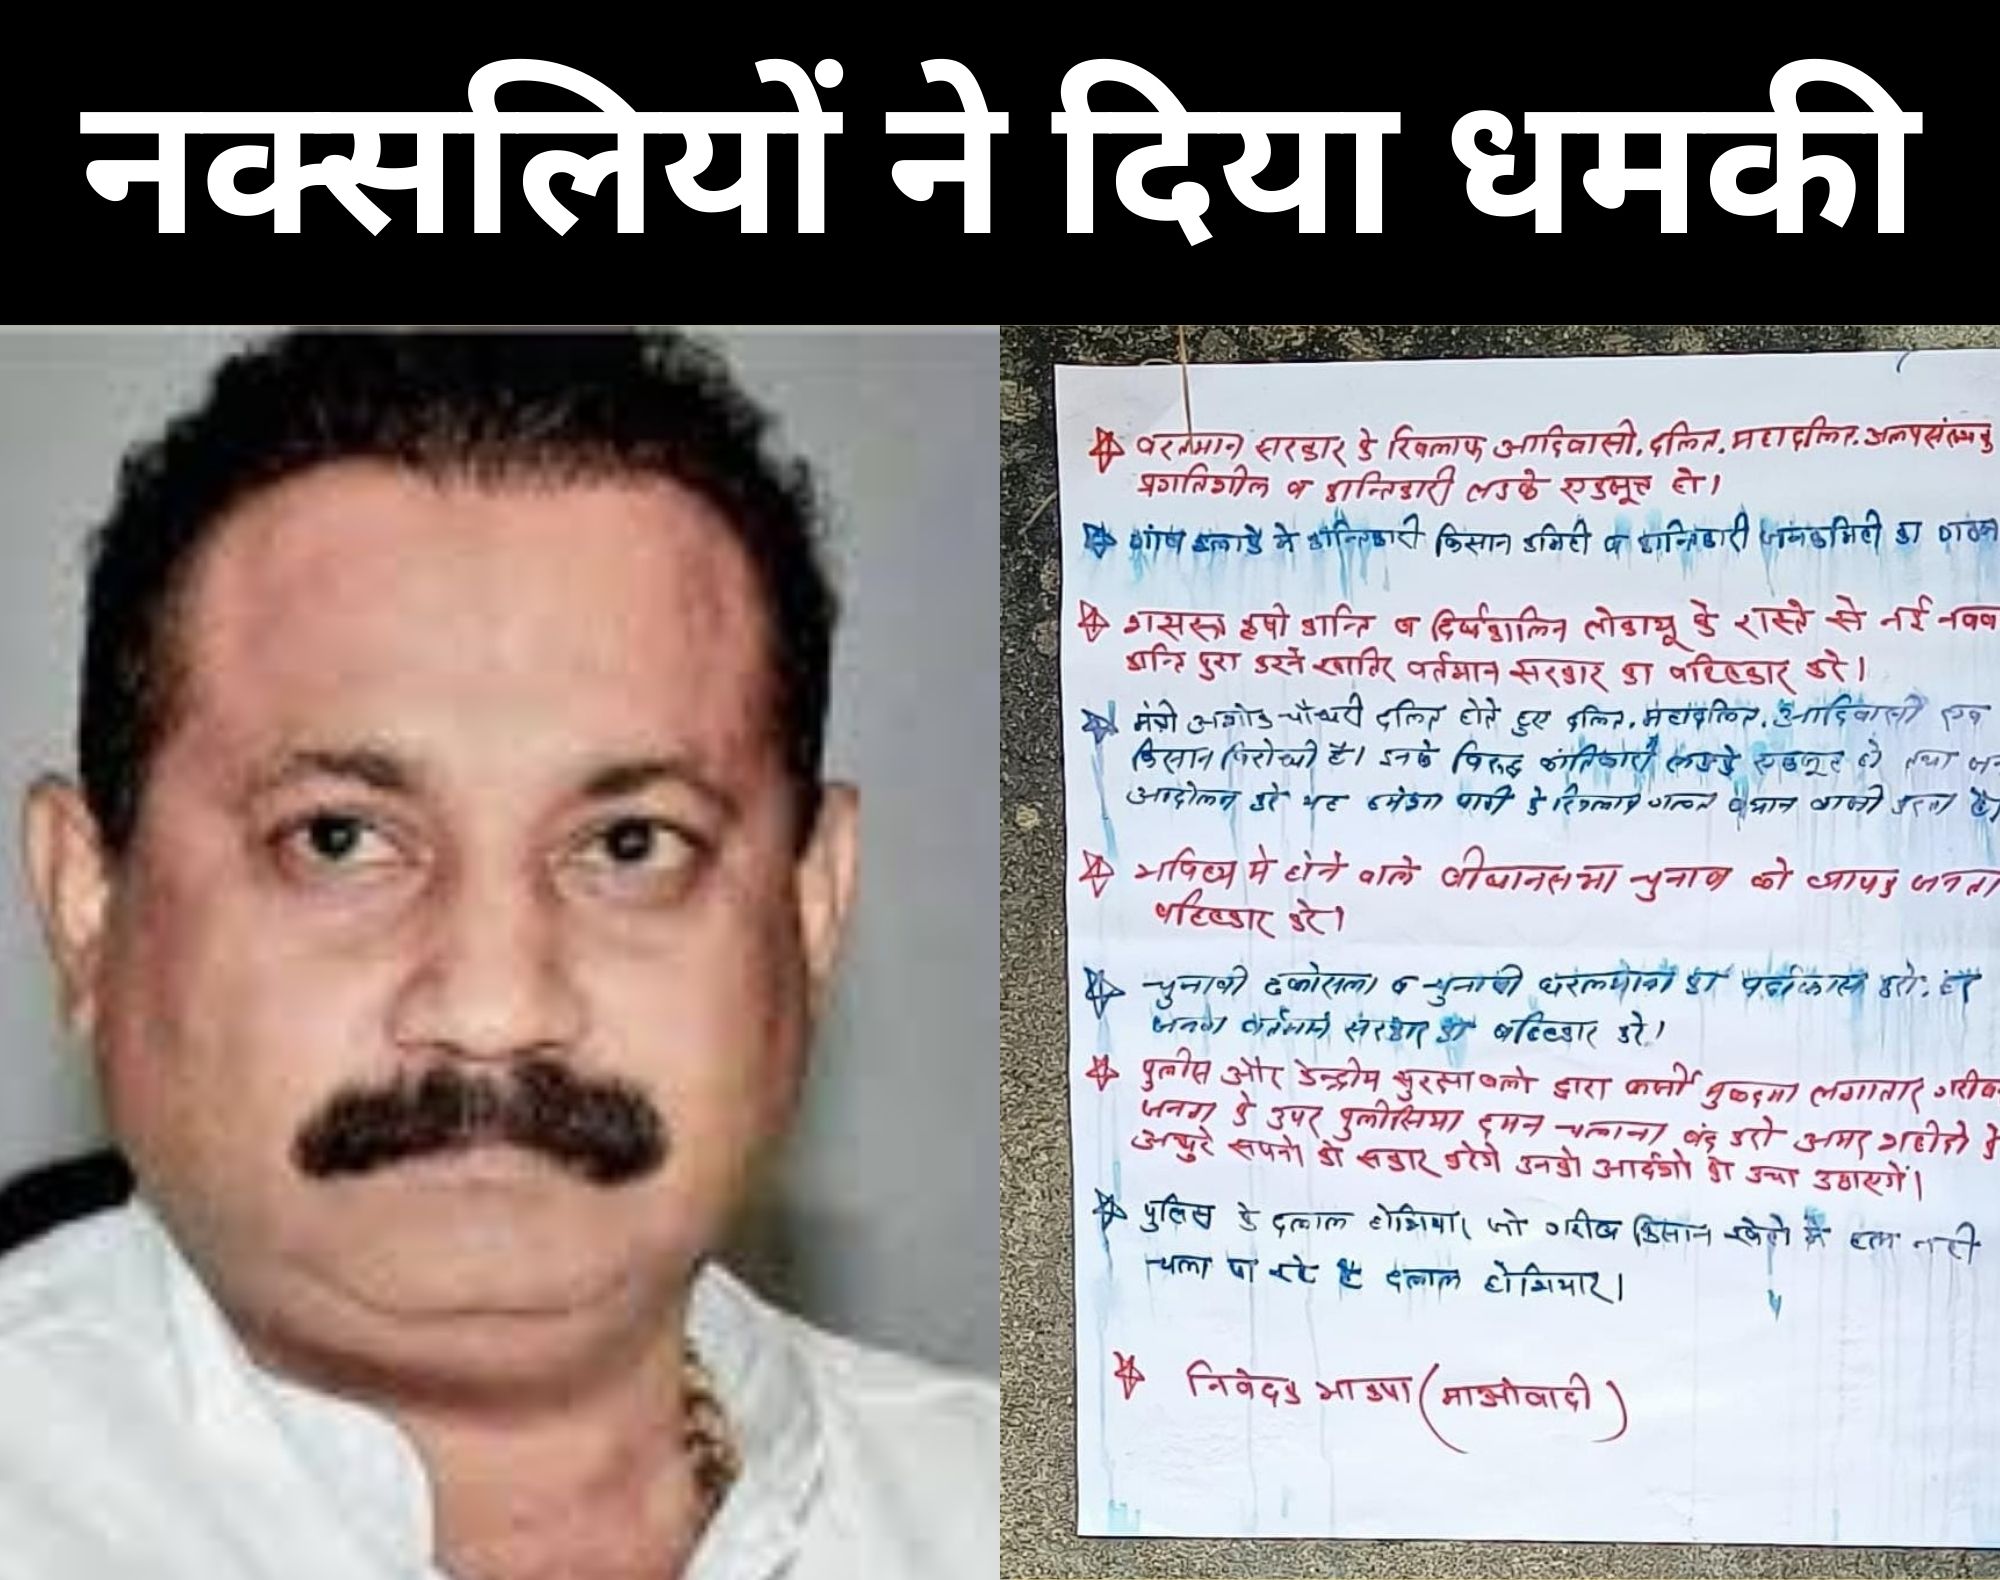 नक्सलियों ने दिया धमकी
वरतमान सरकार के खिलाफ आदिवासी, दलित, महादलित, अल्पसंख्यक
प्रगतिशील व क्रान्तिकारी लडके एकजूट हो।
गांव इलाके मे क्रान्तिकारी किसान कमिटी व क्रान्तिकारी जनकमिटी का गठन
शसस्त्र कृषी क्रान्ति व दिर्घकालिन लोकायू के रास्ते से नई नवव
क्रान्ति पुरा करने खातिर वर्तमान सरकार का बहिष्कार करे।
मंत्री अशोक चौधरी दलित होते हुए दलित, महादलित, आदिवासी एवं
किसान विरोधी है। इनके विरुद्ध क्रांतिकारी लडके एकजूट हो तथा जन
आदोलन करे यह हमेशा पार्टी के खिलाफ गलत बयान बाजी करता है।
भविष्य मे होने वाले वीधानसभा चुनाव को व्यापक जनता
बहिष्कार करे।
चुनावी ढकोसला व चुनावी का पर्दाफास करो, हर
जनता वर्तमान सरकार का बहिष्कार करे।
पुलीस और केन्द्रीय सुरक्षा बलो द्वारा फर्जी मुकदमा लगातार गरीब
जनता के उपर पुलीसिया दमन चलाना बंद करो अमर शहीदो के
अधुरे सपनो को सकार करेगे उनको आर्दशो को उचा उठाएगें।
पुलिस के दलाल होशियार जो गरीब किसान खेतो मे हल नही
चला पा रहे है दलाल होशियार।
निवेदक भाकपा (माओवादी)